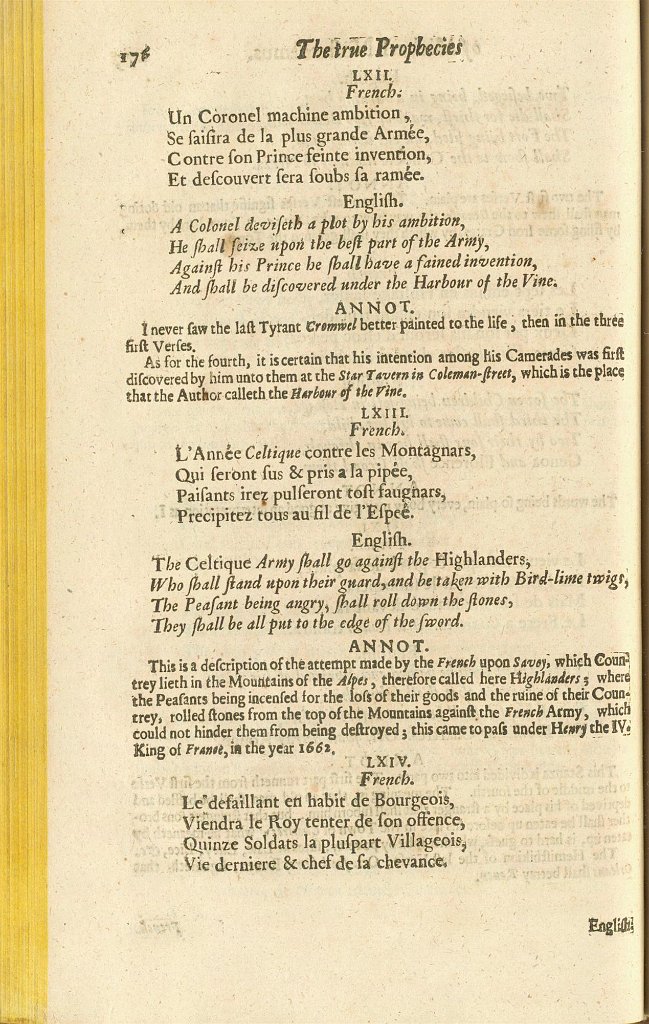 176 The true Prophecies
LXII.
French.
Un Coronel machine ambition,
Se saiſira de la plus grande Armée,
Contre ſon Prince feinte invention,
Et deſcouvert ſera ſoubs ſa ramée.
Engliſh.
A Colonel deviſeth a plot by his ambition,
He ſhall ſeize upon the beſt part of the Army,
Againſt his Prince he ſhall have a fained invention,
And ſhall be diſcovered under the Harbour of the Vine.
ANNOT.
I never ſaw the laſt Tyrant Cromwel better painted to the life, then in the three
firſt Verſes.
As for the fourth, it is certain that his intention among his Camerades was firſt
diſcovered by him unto them at the Star Tavern in Coleman-ſtreet, which is the place
that the Author calleth the Harbour of the Vine.
LXIII.
French.
L'Année Celtique contre les Montagnars,
Qui ſeront ſus & pris a la pipée,
Paiſants irez pulſeront toſt faugnars,
Precipitez tous au fil de l'Eſpeé.
Engliſh.
The Celtique Army ſhall go againſt the Highlanders,
Who ſhall ſtand upon their guard, and be taken with Bird-lime twigs,
The Peaſant being angry, ſhall roll down the ſtones,
They ſhall be all put to the edge of the ſword.
ANNOT.
This is a deſcription of the attempt made by the French upon Savoy, which Coun-
trey lieth in the Mountains of the Alpes, therefore called here Highlanders; where
the Peaſants being incenſed for the loſs of their goods and the ruine of their Coun-
trey, rolled ſtones from the top of the Mountains againſt the French Army, which
could not hinder them from being deſtroyed; this came to paſs under Henry the IV.
King of France, in the year 1662.
LXIV.
French.
Le defaillant en habit de Bourgeois,
Viendra le Roy tenter de ſon offence,
Quinze Soldats la pluſpart Villageois,
Vie derniere & chef de ſa chevance.
Engliſh